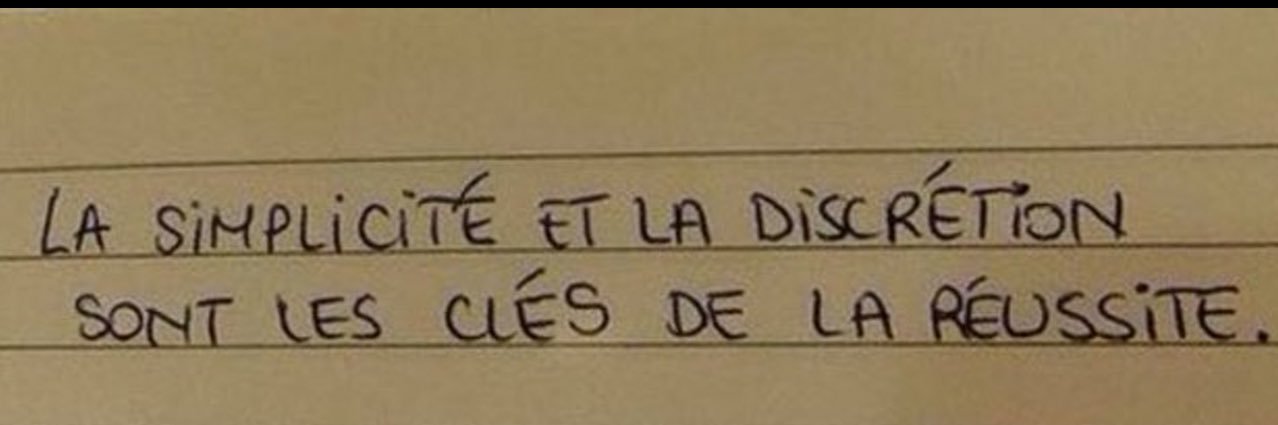 LA SIMPLICITÉ ET LA DISCRÉTION
SONT LES CLÉS DE LA RÉUSSITE.